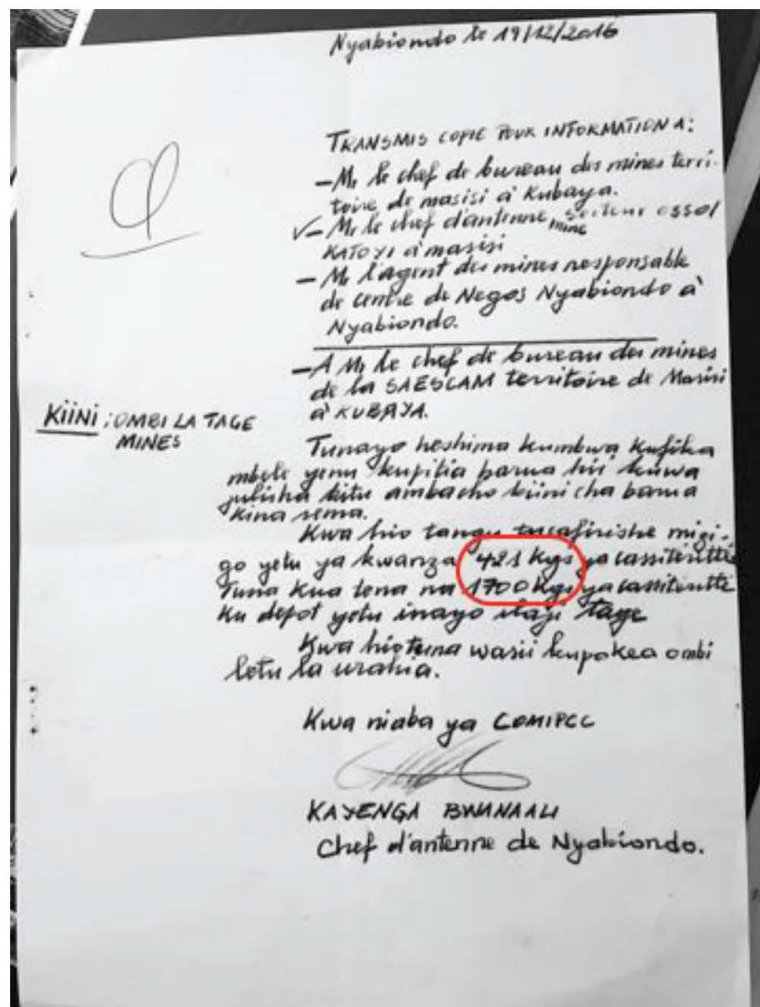 Nyabiondo le 19/12/2016
TRANSMIS COPIE POUR INFORMATION A:
- Mr le chef de bureau des mines terri-
toire de masisi à Kubaya.
✓- Mr le chef d'antenne
mine
KATOYI à masisi
- Mr l'agent des mines responsable
de centre de Negos Nyabiondo à
Nyabiondo.
- A Mr le chef de bureau des mines
de la SAESCAM territoire de Masisi
à KUBAYA.
KIINI : OMBI LA TAGE
MINES
Tunayo heshima kumbwa kufika
mbele yenu kupitia barua hii kuwa
julisha kitu ambacho kiini cha barua
kina sema.
Kwa hio tangu tusafirishe mizi-
go yetu ya kwanza 421 Kgs ya cassiteritte
Tuna kua tena na 1700 Kgs ya cassiteritte
ku depot yetu inayo itaji tage
Kwa hio tuna wasii kupokea ombi
letu la urahia.
Kwa niaba ya COMIPCC
KAYENGA BWANAALI
Chef d'antenne de Nyabiondo.